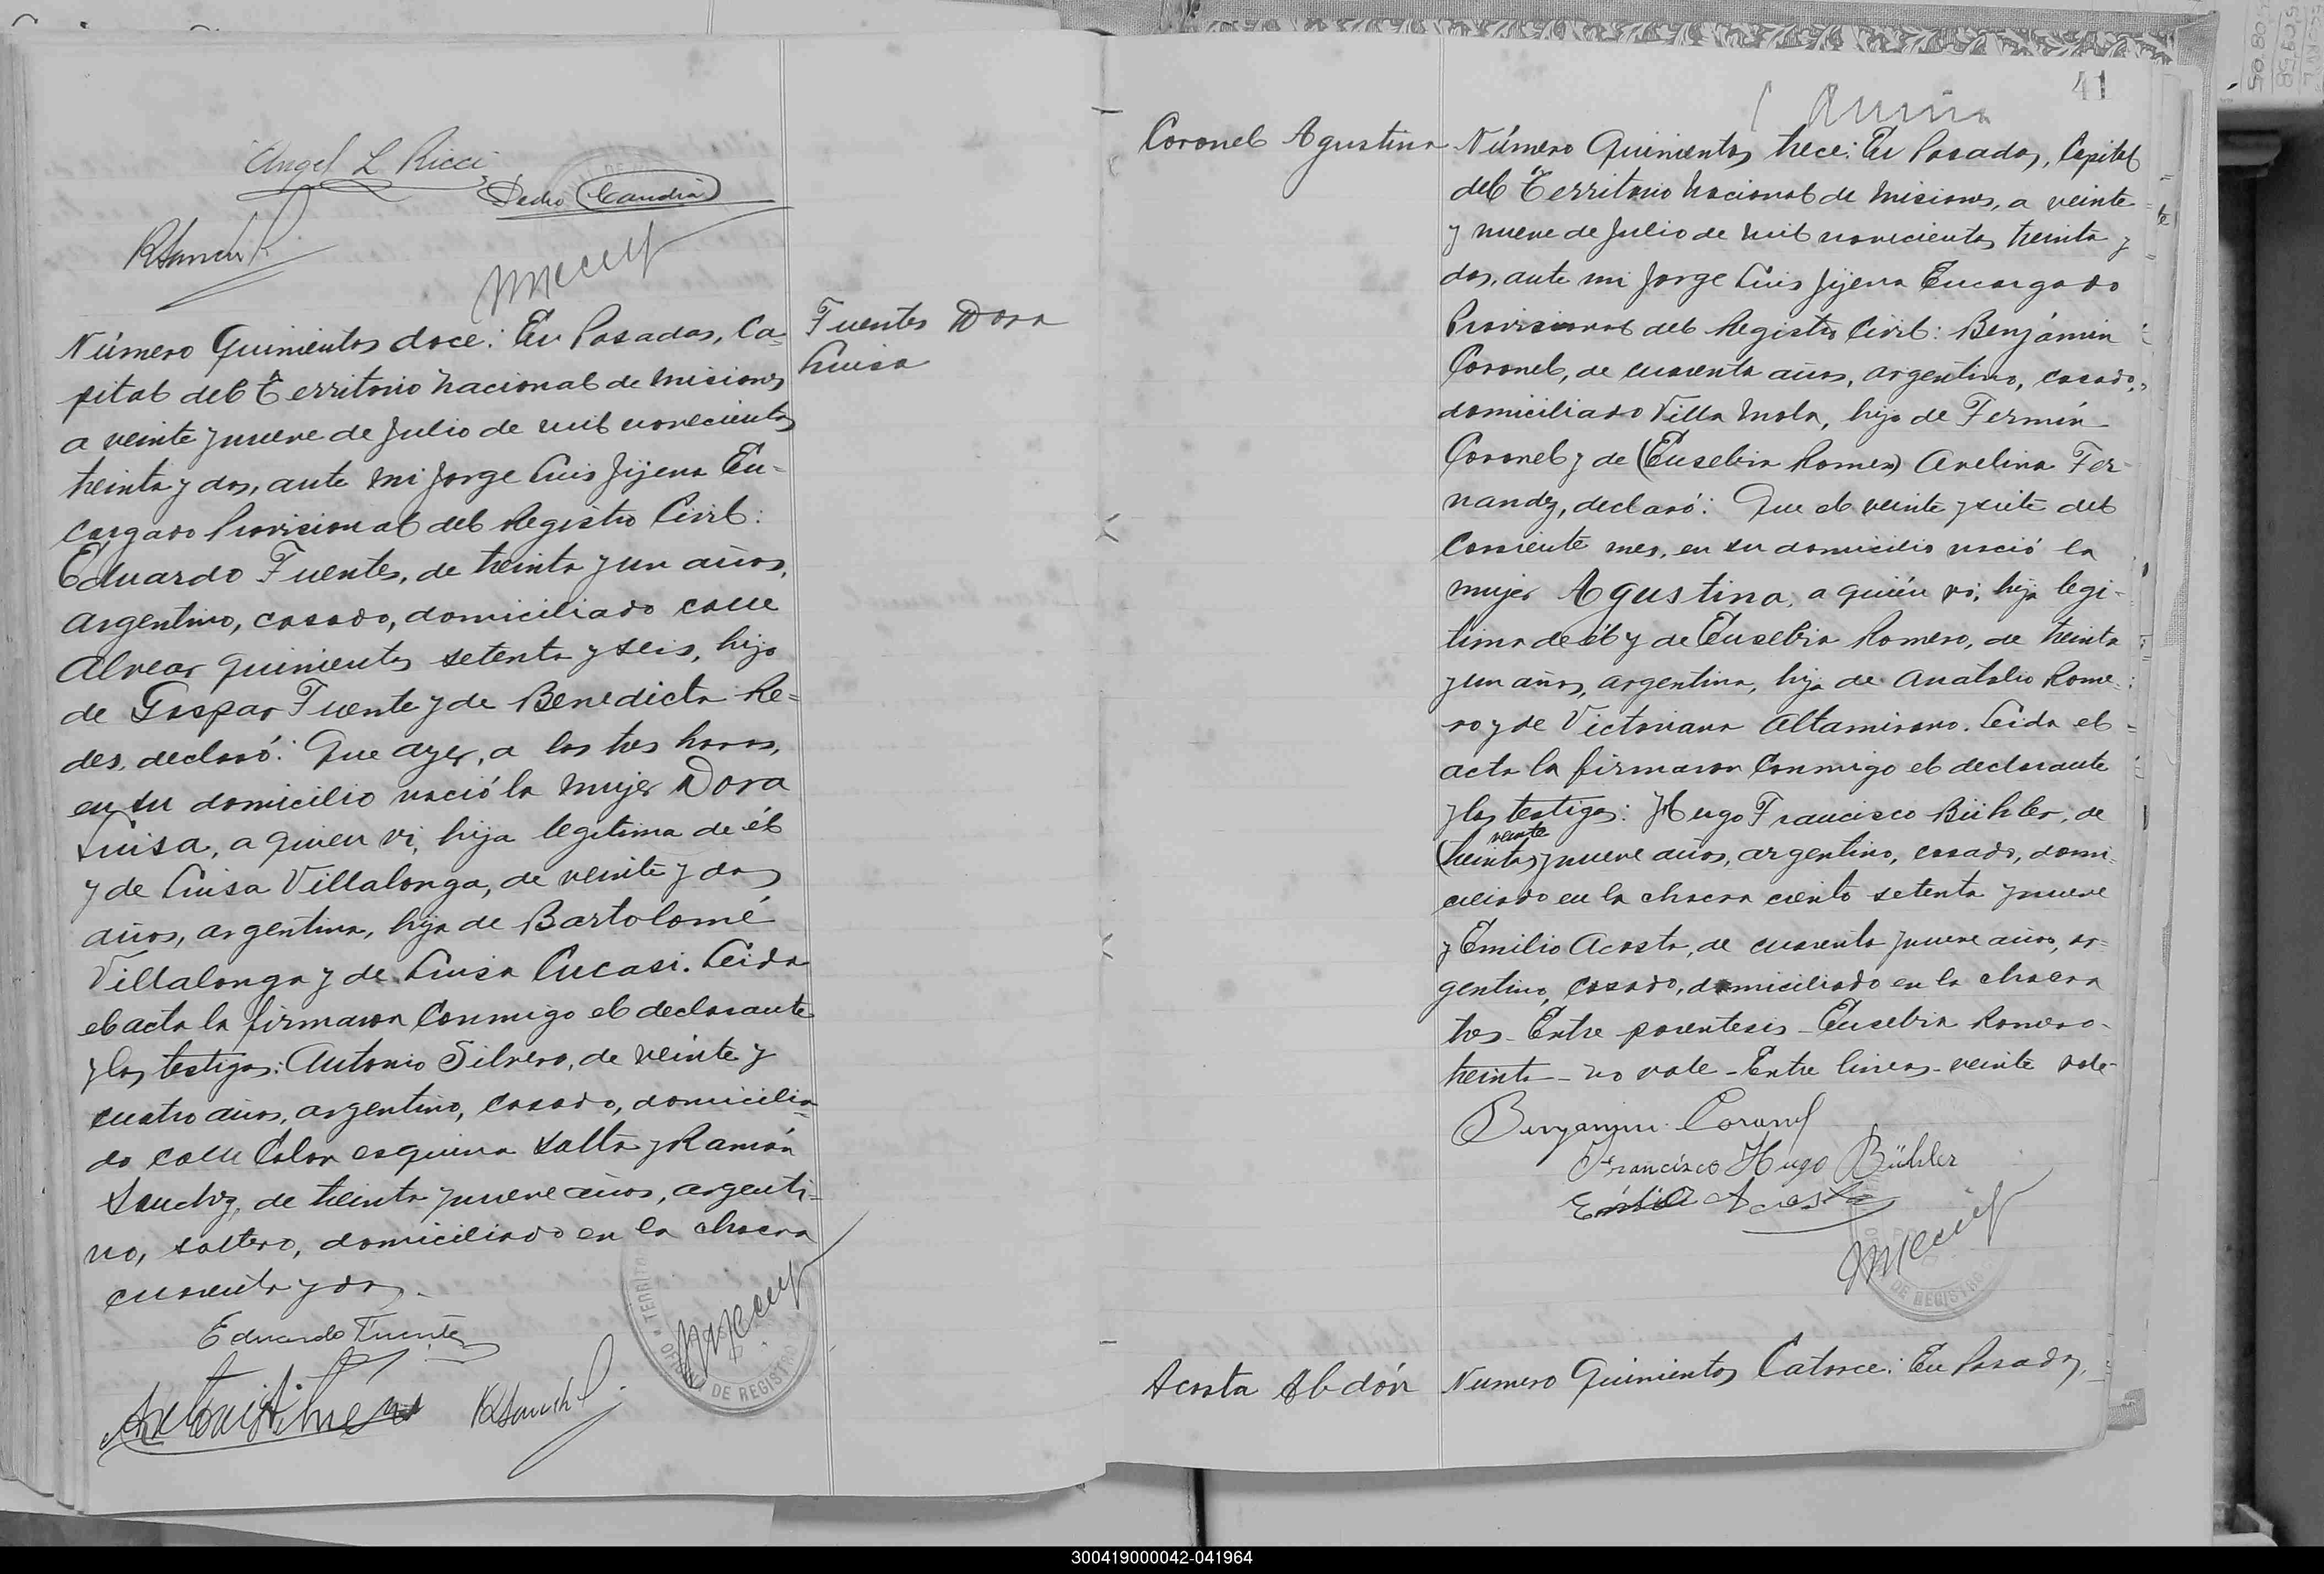 Angel L Ricci
Pedro Candia
RSanchez
Fuentes Dora
Luisa
Número Quinientos doce: En Posadas, Ca=
pital del Territorio Nacional de Misiones
a veinte y nueve de Julio de mil novecientos
treinta y dos, ante mi Jorge Luis Jijena En-
cargado Provisional del Registro Civil:
Eduardo Fuentes, de treinta y un años,
argentino, casado, domiciliado calle
Alvear quinientos setenta y seis, hijo
de Gaspar Fuente y de Benedicta Re=
des, declaró: Que ayer, a las tres horas,
en su domicilio nació la mujer Dora
Luisa, a quien vi, hija legitima de él
y de Luisa Villalonga, de veinte y dos
años, argentina, hija de Bartolomé
Villalonga y de Luisa Lucasi. Leida
el acta la firmaron conmigo el declarante
y los testigos: Antonio Silvero, de veinte y
cuatro años, argentino, casado, domicilia-
do calle Colon esquina Salta y Ramón
Sanchez, de treinta y nueve años, argenti-
no, soltero, domiciliado en la chacra
cuarenta y dos.
Eduardo Fuentes
RSanchez
DE REGISTRO
41
Coronel Agustina
Número Quinientos trece: En Posadas, Capital
del Territorio Nacional de Misiones, a veinte
y nueve de Julio de mil novecientos treinta y
dos, ante mi Jorge Luis Jijena Encargado
Provisional del Registro Civil: Benjámin
Coronel, de cuarenta años, argentino, casado,
domiciliado Villa Mola, hijo de Fermín
Coronel y de (Eusebia Romero) Avelina Fer-
nandez, declaró: Que el veinte y siete del
corriente mes, en su domicilio nació la
mujer Agustina, a quién vi, hija legi-
tima de él y de Eusebia Romero, de treinta
y un años, argentina, hija de Anatalio Rome-
ro y de Victoriana Altamirano. Leida el
acta la firmaron conmigo el declarante
y los testigos: Hugo Francisco Bühler, de
veinte
(treinta) y nueve años, argentino, casado, domi-
ciliado en la chacra ciento setenta y nueve
y Emilio Acosta, de cuarenta y nueve años, ar-
gentino, casado, domiciliado en la chacra
tres - Entre parentesis - Eusebia Romero -
treinta - no vale - Entre lineas - veinte vale -
Benjamin Coronel
Francisco Hugo Bühler
Emilio Acosta
DE REGISTRO
Acosta Abdón
Numero Quinientos Catorce: En Posadas,
300419000042-041964